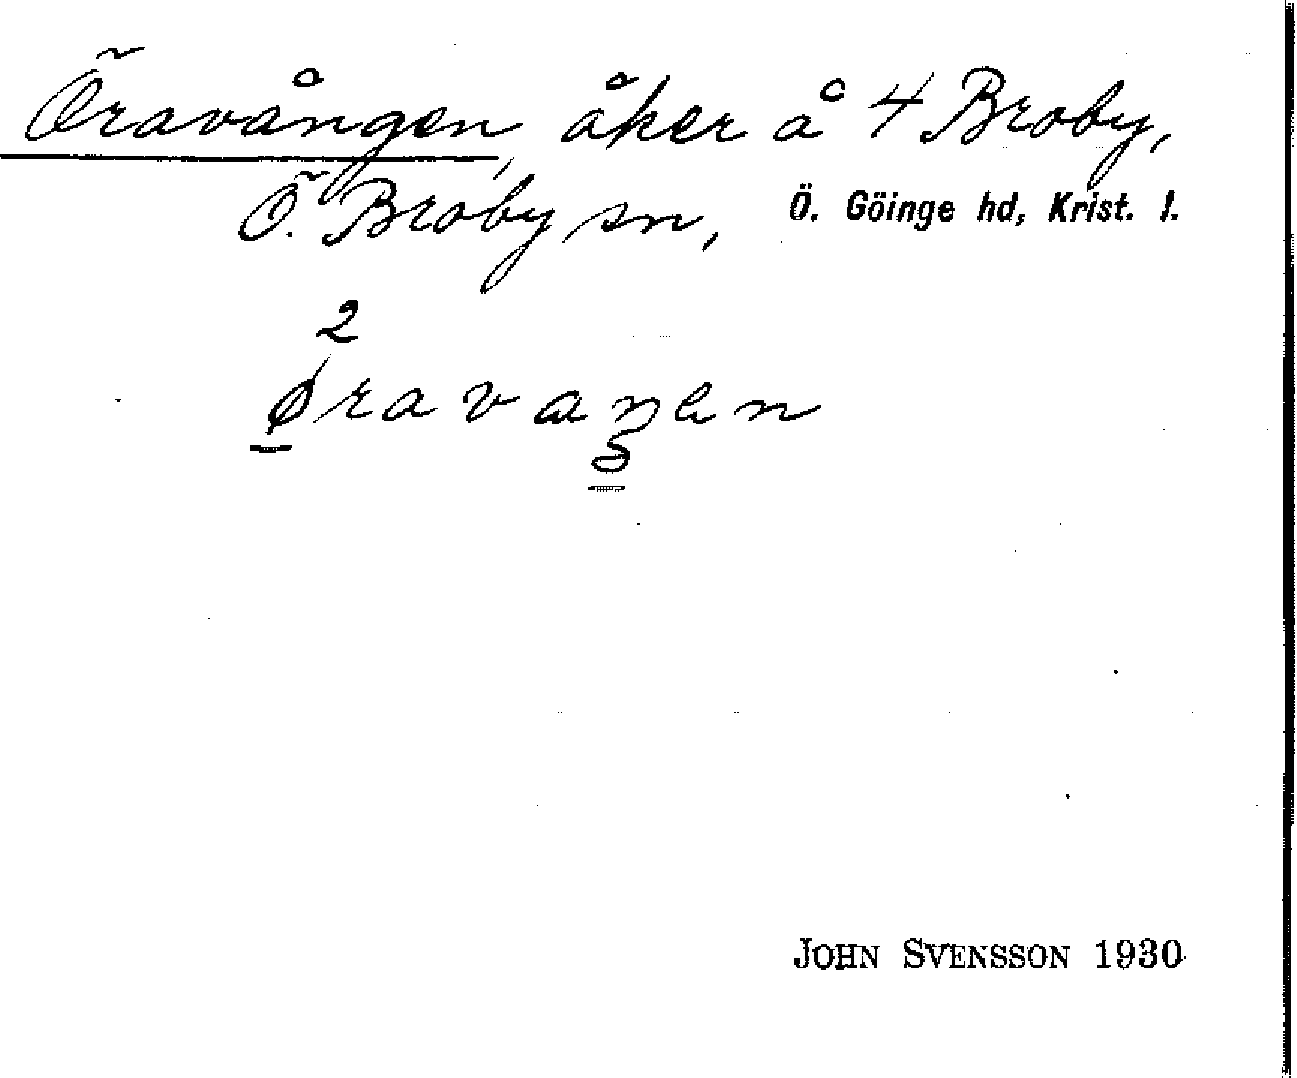 Öravången, åker å 4 Broby,
Ö. Broby sn, Ö. Göinge hd, Krist. l.
2
øravaŋen
3
JOHN SVENSSON 1930